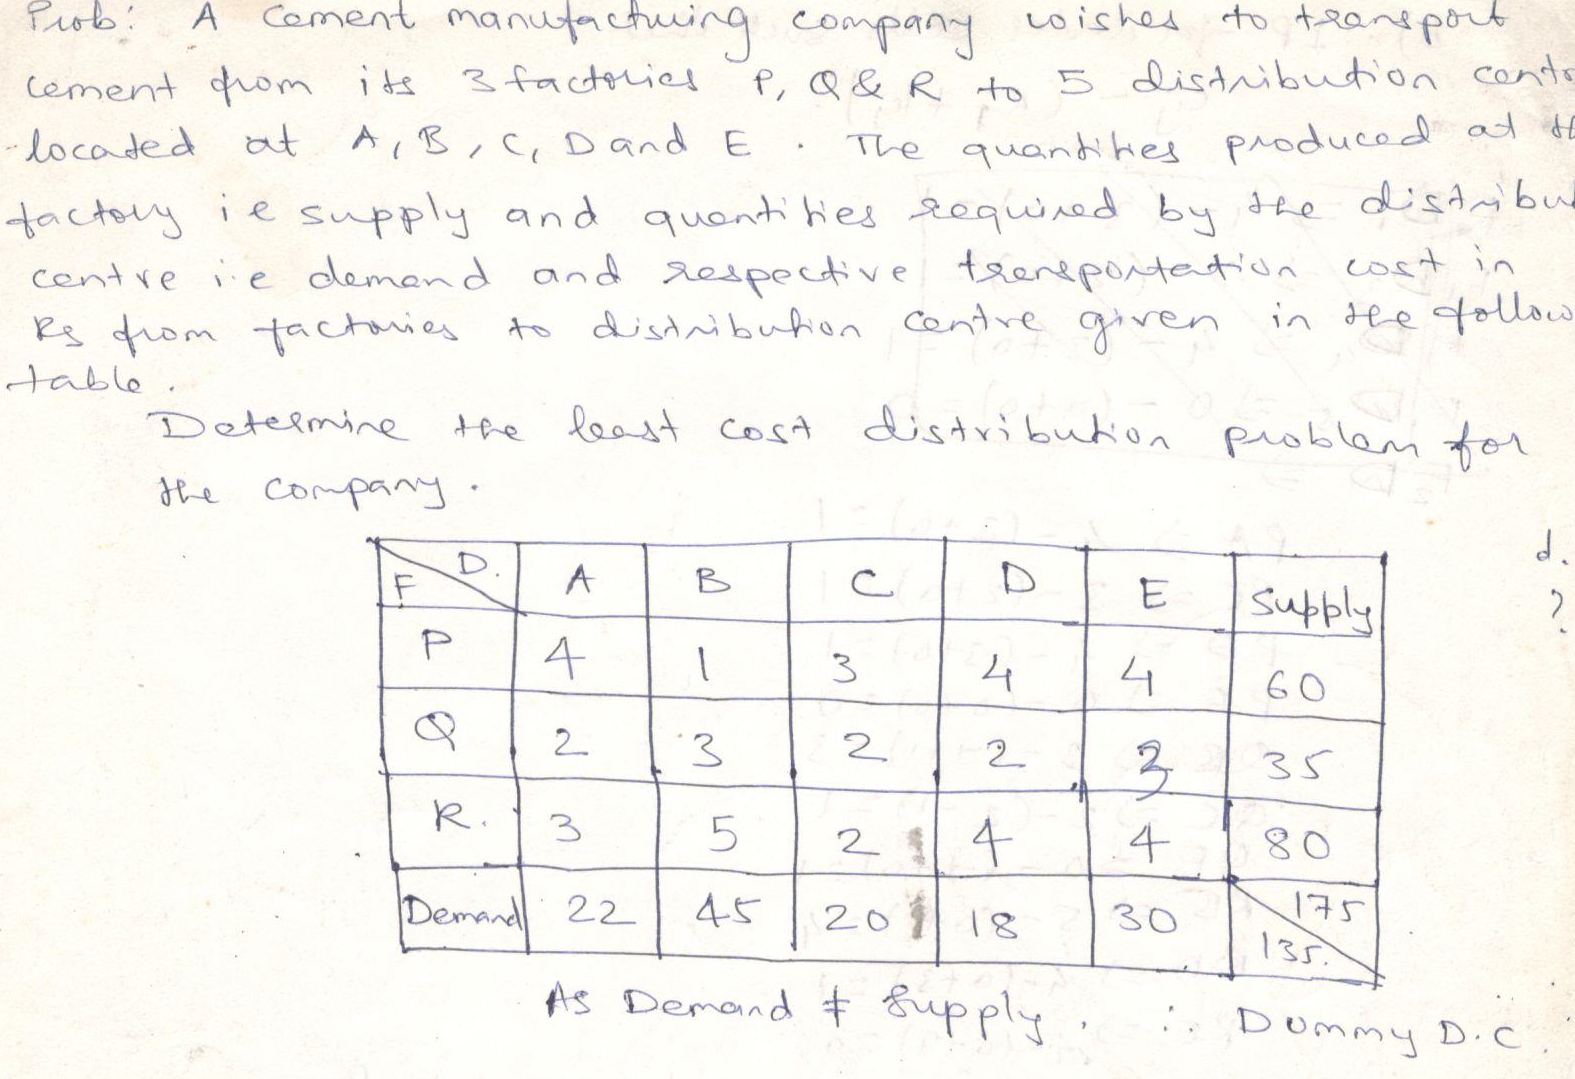 Prob: A Cement manufacturing company wishes to transport
cement from its 3 factories P, Q & R to 5 distribution centr
located at A, B, C, D and E. The quantities produced at th
factory ie supply and quantities required by the distribut
centre i.e demand and respective transportation cost in
Rs from factories to distribution centre given in the follow
table.
Determine the least cost distribution problem for
the company.
F D. A B C D E Supply
P 4 1 3 4 4 60
Q 2 3 2 2 3 35
R. 3 5 2 4 4 80
Demand 22 45 20 18 30 175 135.
As Demand ≠ Supply. ∴ Dummy D.C.
d.
?